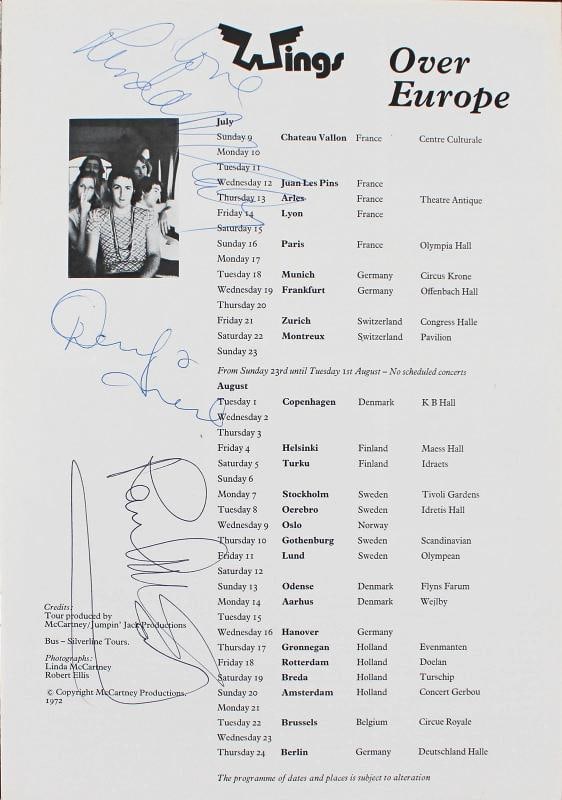 Wings
Over
Europe
love
Linda
July
Sunday 9 Chateau Vallon France Centre Culturale
Monday 10
Tuesday 11
Wednesday 12 Juan Les Pins France
Thursday 13 Arles France Theatre Antique
Friday 14 Lyon France
Saturday 15
Sunday 16 Paris France Olympia Hall
Monday 17
Tuesday 18 Munich Germany Circus Krone
Wednesday 19 Frankfurt Germany Offenbach Hall
Thursday 20
Friday 21 Zurich Switzerland Congress Halle
Saturday 22 Montreux Switzerland Pavilion
Sunday 23
From Sunday 23rd until Tuesday 1st August – No scheduled concerts
August
Tuesday 1 Copenhagen Denmark K B Hall
Wednesday 2
Thursday 3
Friday 4 Helsinki Finland Maess Hall
Saturday 5 Turku Finland Idraets
Sunday 6
Monday 7 Stockholm Sweden Tivoli Gardens
Tuesday 8 Oerebro Sweden Idretis Hall
Wednesday 9 Oslo Norway
Thursday 10 Gothenburg Sweden Scandinavian
Friday 11 Lund Sweden Olympean
Saturday 12
Sunday 13 Odense Denmark Flyns Farum
Monday 14 Aarhus Denmark Wejlby
Tuesday 15
Wednesday 16 Hanover Germany
Thursday 17 Gronnegan Holland Evenmanten
Friday 18 Rotterdam Holland Doelan
Saturday 19 Breda Holland Turschip
Sunday 20 Amsterdam Holland Concert Gerbou
Monday 21
Tuesday 22 Brussels Belgium Circue Royale
Wednesday 23
Thursday 24 Berlin Germany Deutschland Halle
The programme of dates and places is subject to alteration
Denny
Paul
Credits:
Tour produced by
McCartney/Jumpin' Jack Productions
Bus – Silverline Tours.
Photographs:
Linda McCartney
Robert Ellis
© Copyright McCartney Productions.
1972